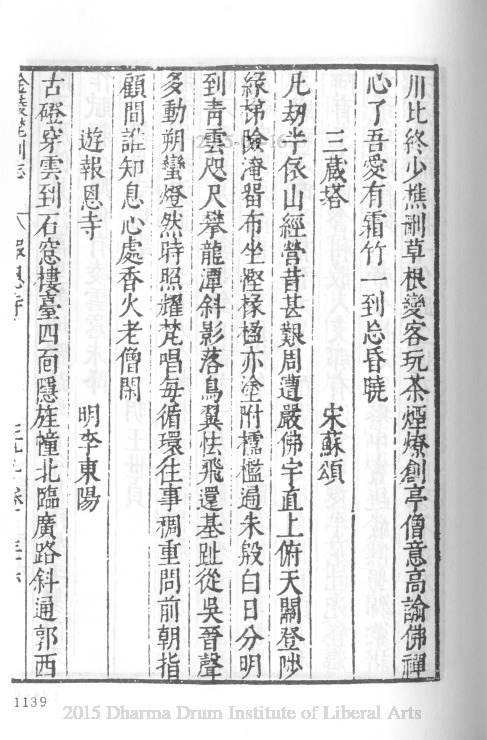 川比終少樵劚草根變客玩茶煙燎創亭僧意高諭佛禪
心了吾愛有霜竹一到忘昏曉
三藏塔 宋蘇頌
凡刼半依山經營昔甚艱周遭嚴佛宇直上俯天關登陟
緣梯險淹留布坐慳椽楹亦塗附櫺檻遍朱殷白日分明
到青雲咫尺攀龍潭斜影落鳥翼怯飛還基趾從吳晉聲
多動朔蠻燈然時照耀梵唱每循環往事稠重問前朝指
顧間誰知息心處香火老僧閑
遊報恩寺 明李東陽
古磴穿雲到石窓樓臺四面隱旌幢北臨廣路斜通郭西
1139
2015 Dharma Drum Institute of Liberal Arts